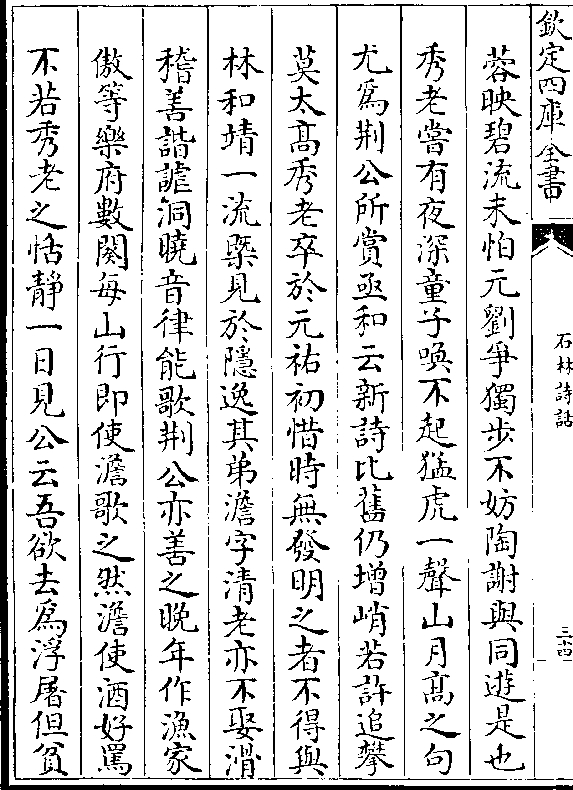 欽定四庫全書
石林詩話
三十四
蓉映碧流未怕元劉爭獨步不妨陶謝與同遊是也
秀老嘗有夜深童子喚不起猛虎一聲山月髙之句
尤為荆公所賞亟和云新詩比舊仍增峭若許追攀
莫太髙秀老卒於元祐初惜時無發明之者不得與
林和靖一流槩見於隱逸其弟澹字清老亦不娶滑
稽善諧謔洞曉音律能歌荆公亦善之晩年作漁家
傲等樂府數闋每山行即使澹歌之然澹使酒好罵
不若秀老之恬靜一日見公云吾欲去為浮屠但貧